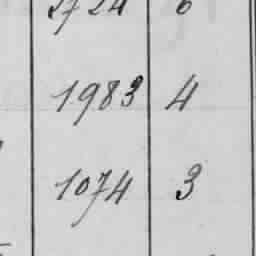 2724 6
1983 4
1074 3